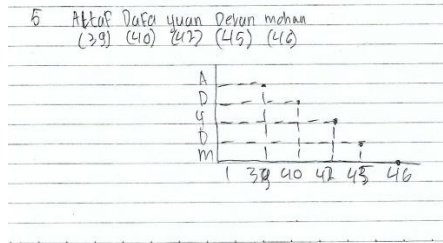 5 Attaf Dafa yuan Devan mohan
(39) (40) (42) (45) (46)
A
D
y
D
m
1 39 40 42 45 46